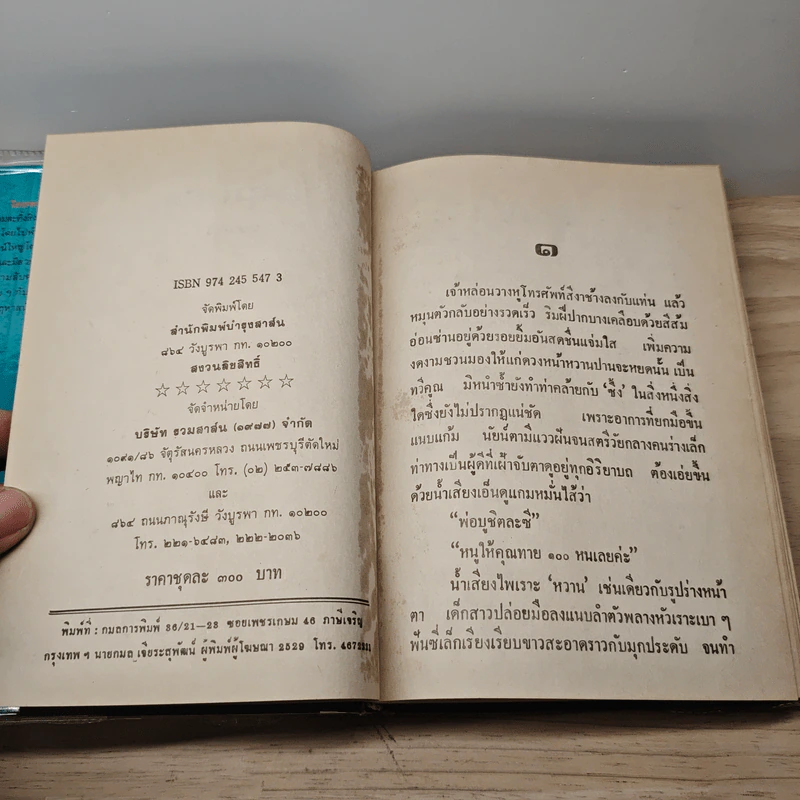 ISBN 974 245 547 3
จัดพิมพ์โดย
สำนักพิมพ์บำรุงสาส์น
๘๖๔ วังบูรพา กท. ๑๐๒๐๐
สงวนลิขสิทธิ์
☆☆☆☆☆☆☆
จัดจำหน่ายโดย
บริษัท รวมสาส์น (๑๙๗๗) จำกัด
๑๐๙๑/๘๖ จัตุรัสนครหลวง ถนนเพชรบุรีตัดใหม่
พญาไท กท. ๑๐๔๐๐ โทร. (๐๒) ๒๕๓-๗๘๘๖
และ
๘๖๔ ถนนภาณุรังษี วังบูรพา กท. ๑๐๒๐๐
โทร. ๒๒๑-๖๔๘๓, ๒๒๒-๒๐๓๖
ราคาชุดละ ๓๐๐ บาท
พิมพ์ที่ : กมลการพิมพ์ 36/21—23 ซอยเพชรเกษม 46 ภาษีเจริญ
กรุงเทพ ฯ นายกมล เจียระสุพัฒน์ ผู้พิมพ์ผู้โฆษณา 2529 โทร.
๑
เจ้าหล่อนวางหูโทรศัพท์สีงาช้างลงกับแท่น แล้ว
หมุนตัวกลับอย่างรวดเร็ว ริมฝีปากบางเคลือบด้วยสีส้ม
อ่อนซ่านอยู่ด้วยรอยยิ้มอันสดชื่นแจ่มใส เพิ่มความ
งดงามชวนมองให้แก่ดวงหน้าหวานปานจะหยดนั้น เป็น
ทวีคูณ มิหนำซ้ำยังทำท่าคล้ายกับ ‘ซึ้ง’ ในสิ่งหนึ่งสิ่ง
ใดซึ่งยังไม่ปรากฏแน่ชัด เพราะอาการที่ยกมือขึ้น
แนบแก้ม นัยน์ตามีแววฝันจนสตรีวัยกลางคนร่างเล็ก
ท่าทางเป็นผู้ดีที่เฝ้าจับตาดูอยู่ทุกอิริยาบถ ต้องเอ่ยขึ้น
ด้วยน้ำเสียงเอ็นดูแกมหมั่นไส้ว่า
“พ่อบูชิตละซี”
“หนูให้คุณทาย ๑๐๐ หนเลยค่ะ”
น้ำเสียงไพเราะ ‘หวาน’ เช่นเดียวกับรูปร่างหน้า
ตา เด็กสาวปล่อยมือลงแนบลำตัวพลางหัวเราะเบา ๆ
ฟันซี่เล็กเรียงเรียบขาวสะอาดราวกับมุกประดับ จนทำ